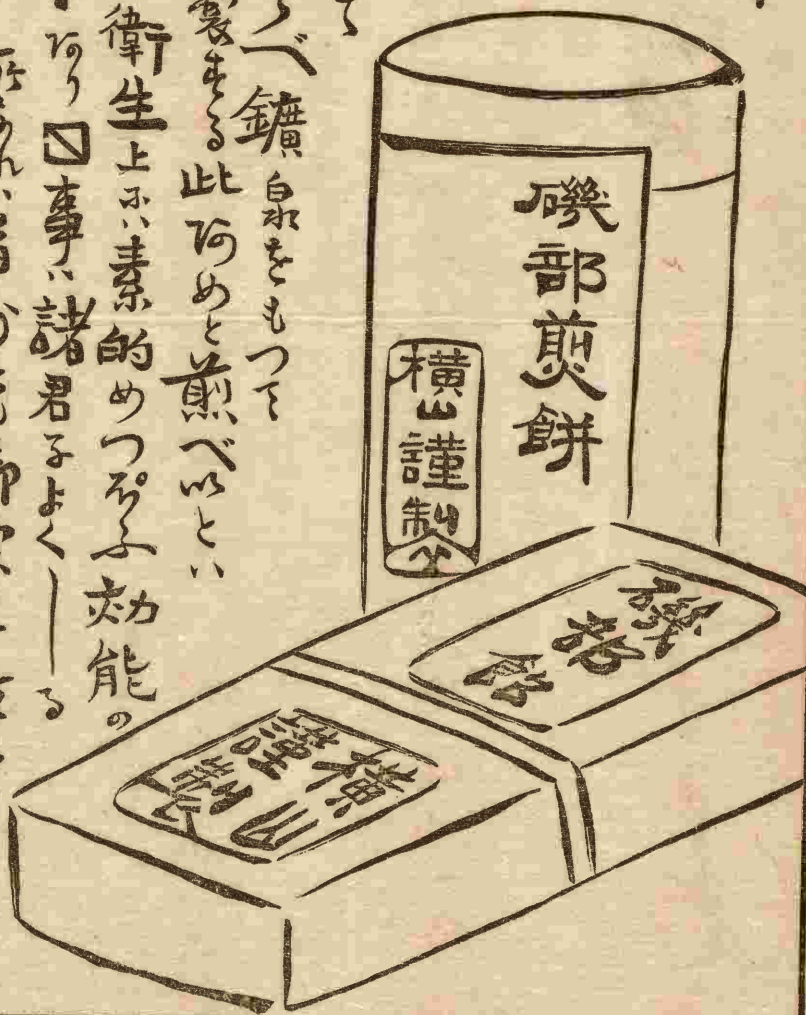 磯部煎餅
横山謹製
磯部飴
横山
謹製
べ鑛泉をもつて
製する此阿めと煎べいとハ
衛生上にハ素的めつぽふ効能の
阿り〼事ハ諸君子よくしる